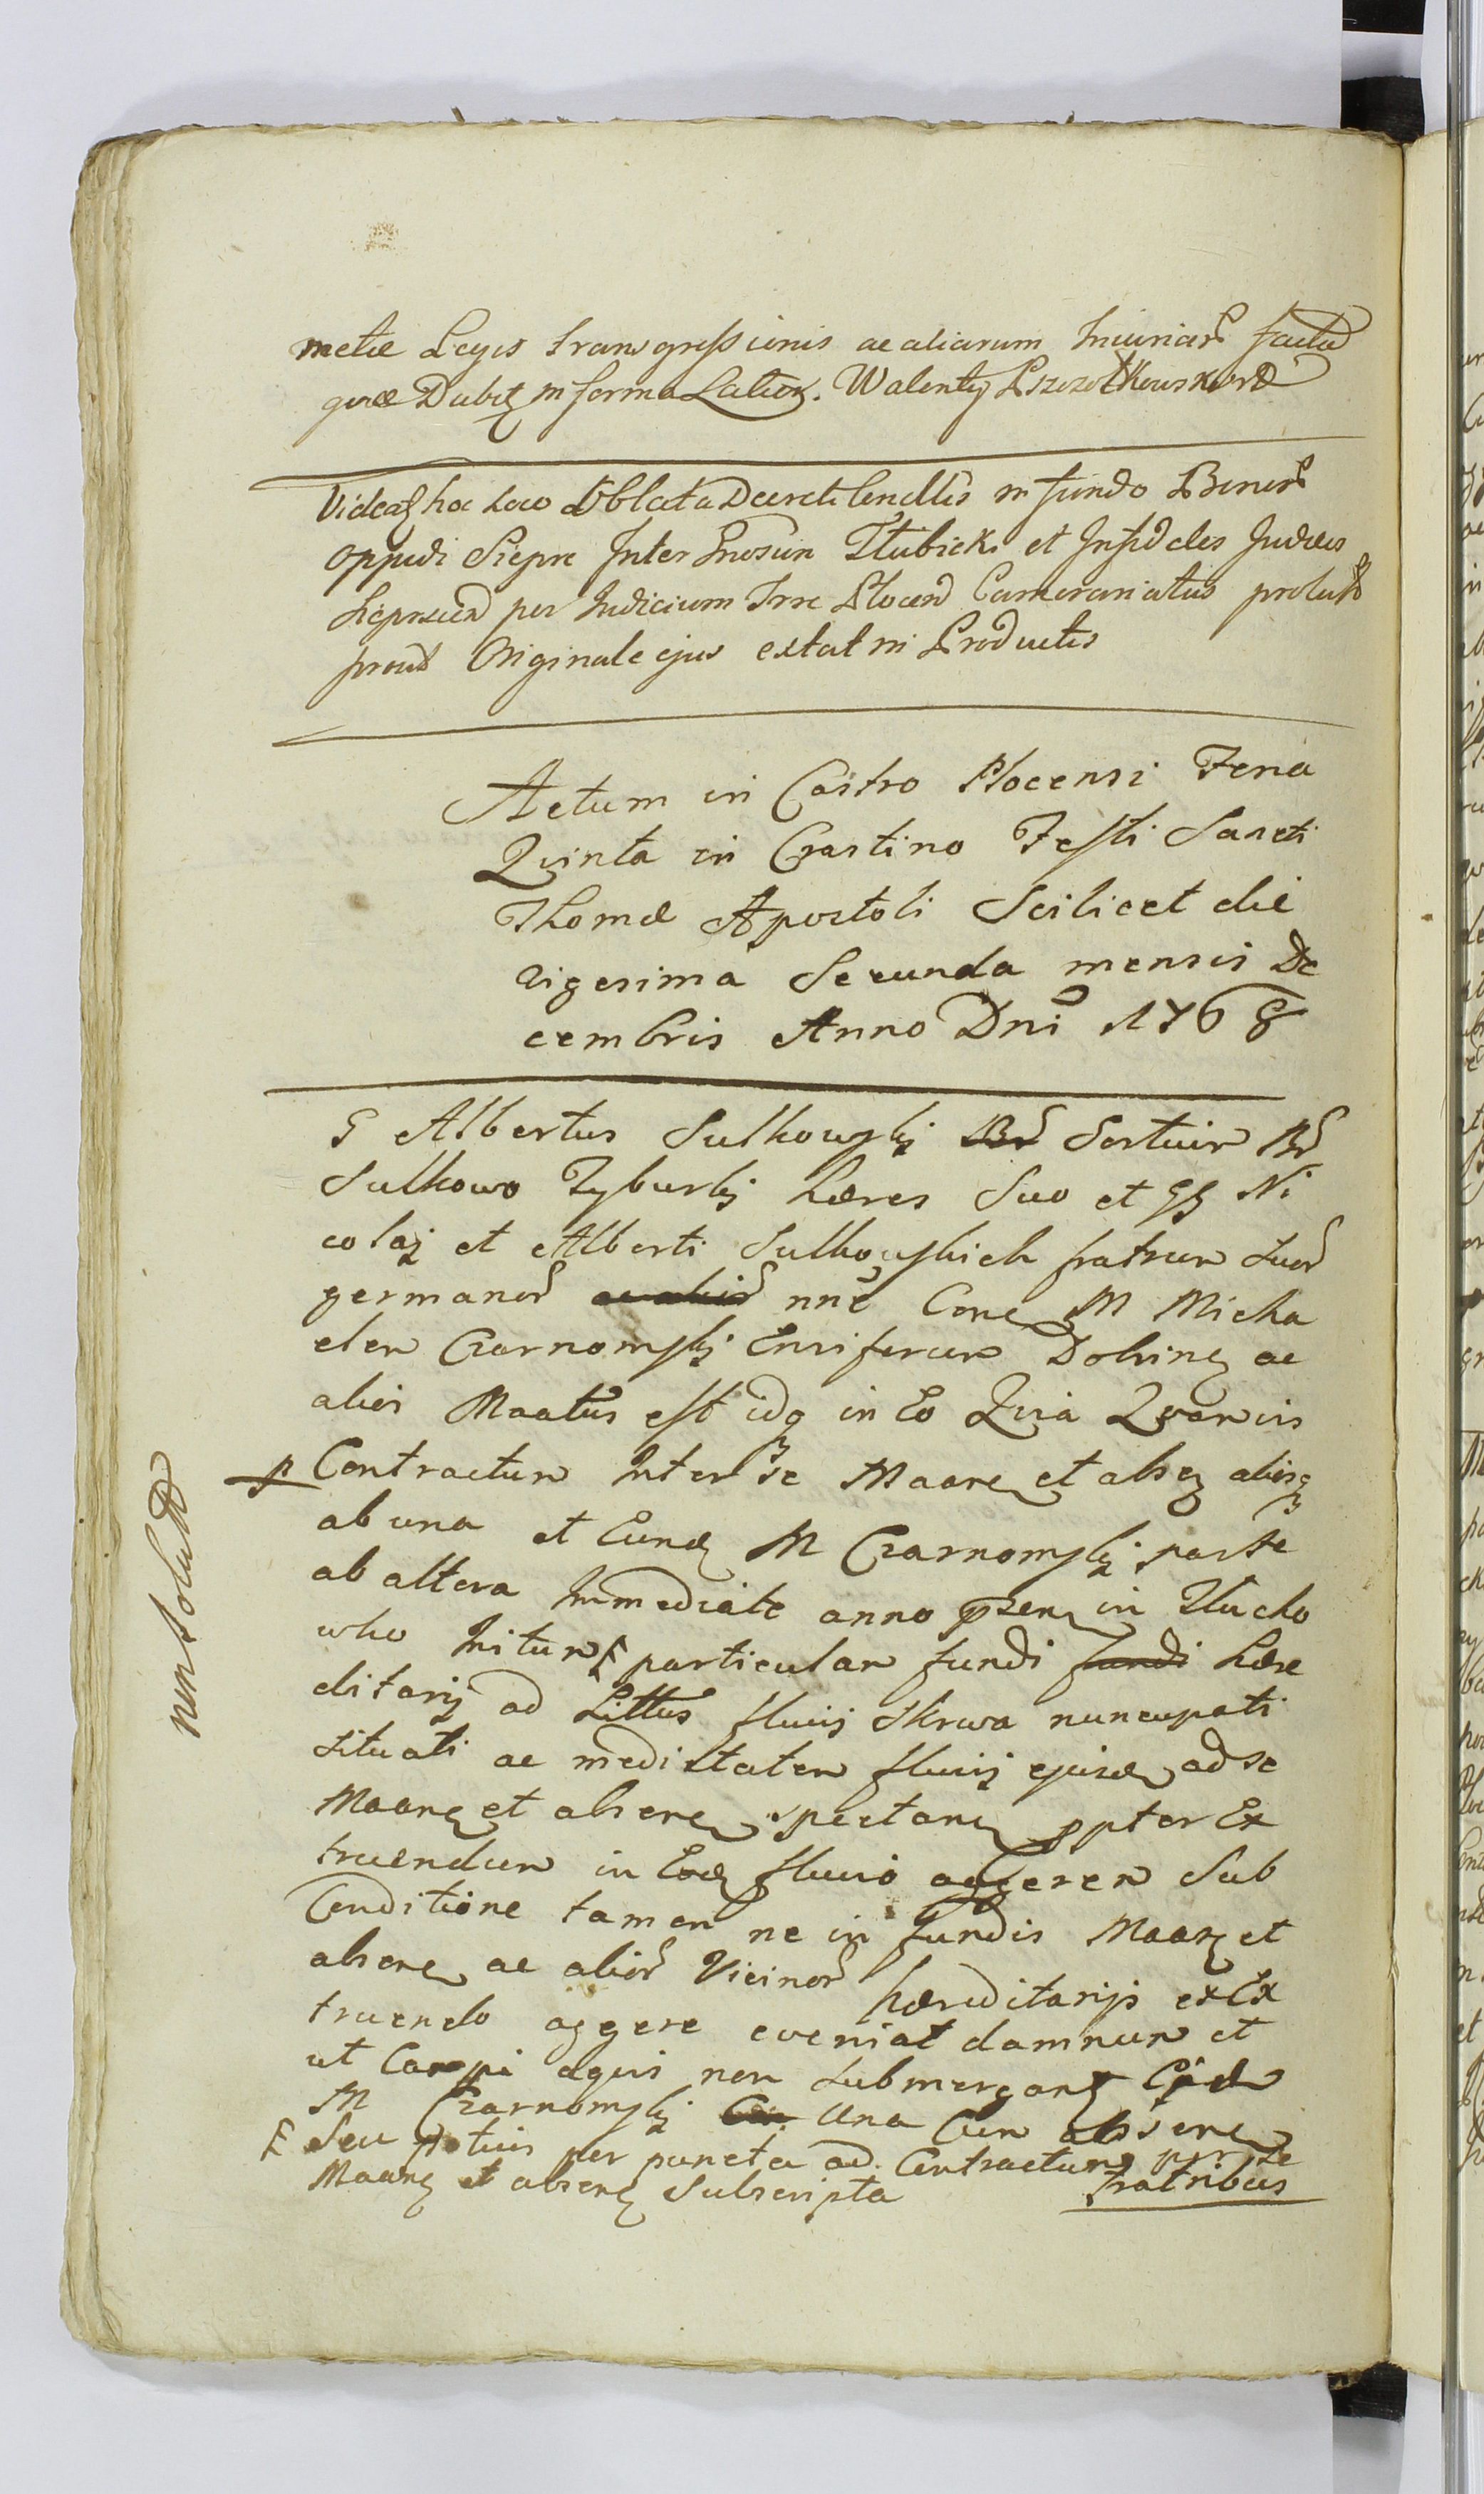 metiæ Legis transgressionis ac aliarum Iniuriar factæ
quæ Dabitz in forma Lation. Walenty Pszczołkowski
Videatz hoc Loco Oblata Decreti Condllis in fundo Bonor
Oppidi Siepre Inter Gnosum Tłubicki et Infideles Judæos
Sieprscien per Judicium Trre Plocen Camerariatus prolati
prout Originale ejus extat in Productis
Actum in Castro Plocensi Feria
Quinta in Crastino Festi Sancti
Thomæ Apostoli Scilicet die
vigesima Secunda mensis De
cembris Anno Dni 1768
G Albertus Sulkowskj Bnr Sortium Bnr
Sulkowo Tyburtÿ hæres Suo et GG Ni
colaj et Alberti Sulkowskich fratrum Suor
germanor ac alior nne Cone M Micha
elem Czarnomskj Ensiferum Dobrinen ac
alios Maatus est idq in Eo Quia Quamvis
Contractum Inter se Maare et absen aliisq
ab una et Eund M Czarnomskj parte
ab altera Immediate anno præsen in Tłucho
who Initum particular fundi fundi Hære
ditarÿ ad Littus fluvÿ Skrwa nuncupati
situati ac medietatem fluvÿ ejusd ad se
Maare et absere spectan ppter Ex
truendum in Eod fluvio aggerem Sub
Conditione tamen ne in fundis Maare et
absere ac alior Vicinor hæreditarÿs ex Ex
truendo aggere eveniat damnum et
ut Campi aquis non submergantz
M Czarnomskj Cu Una Cum absere
Seu potius per puncta ad Contractum per se
Maare et absere Subscripta
fratribus
non solut